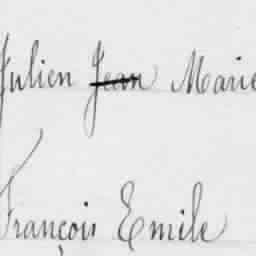 Julien Jean Marie
François Emile